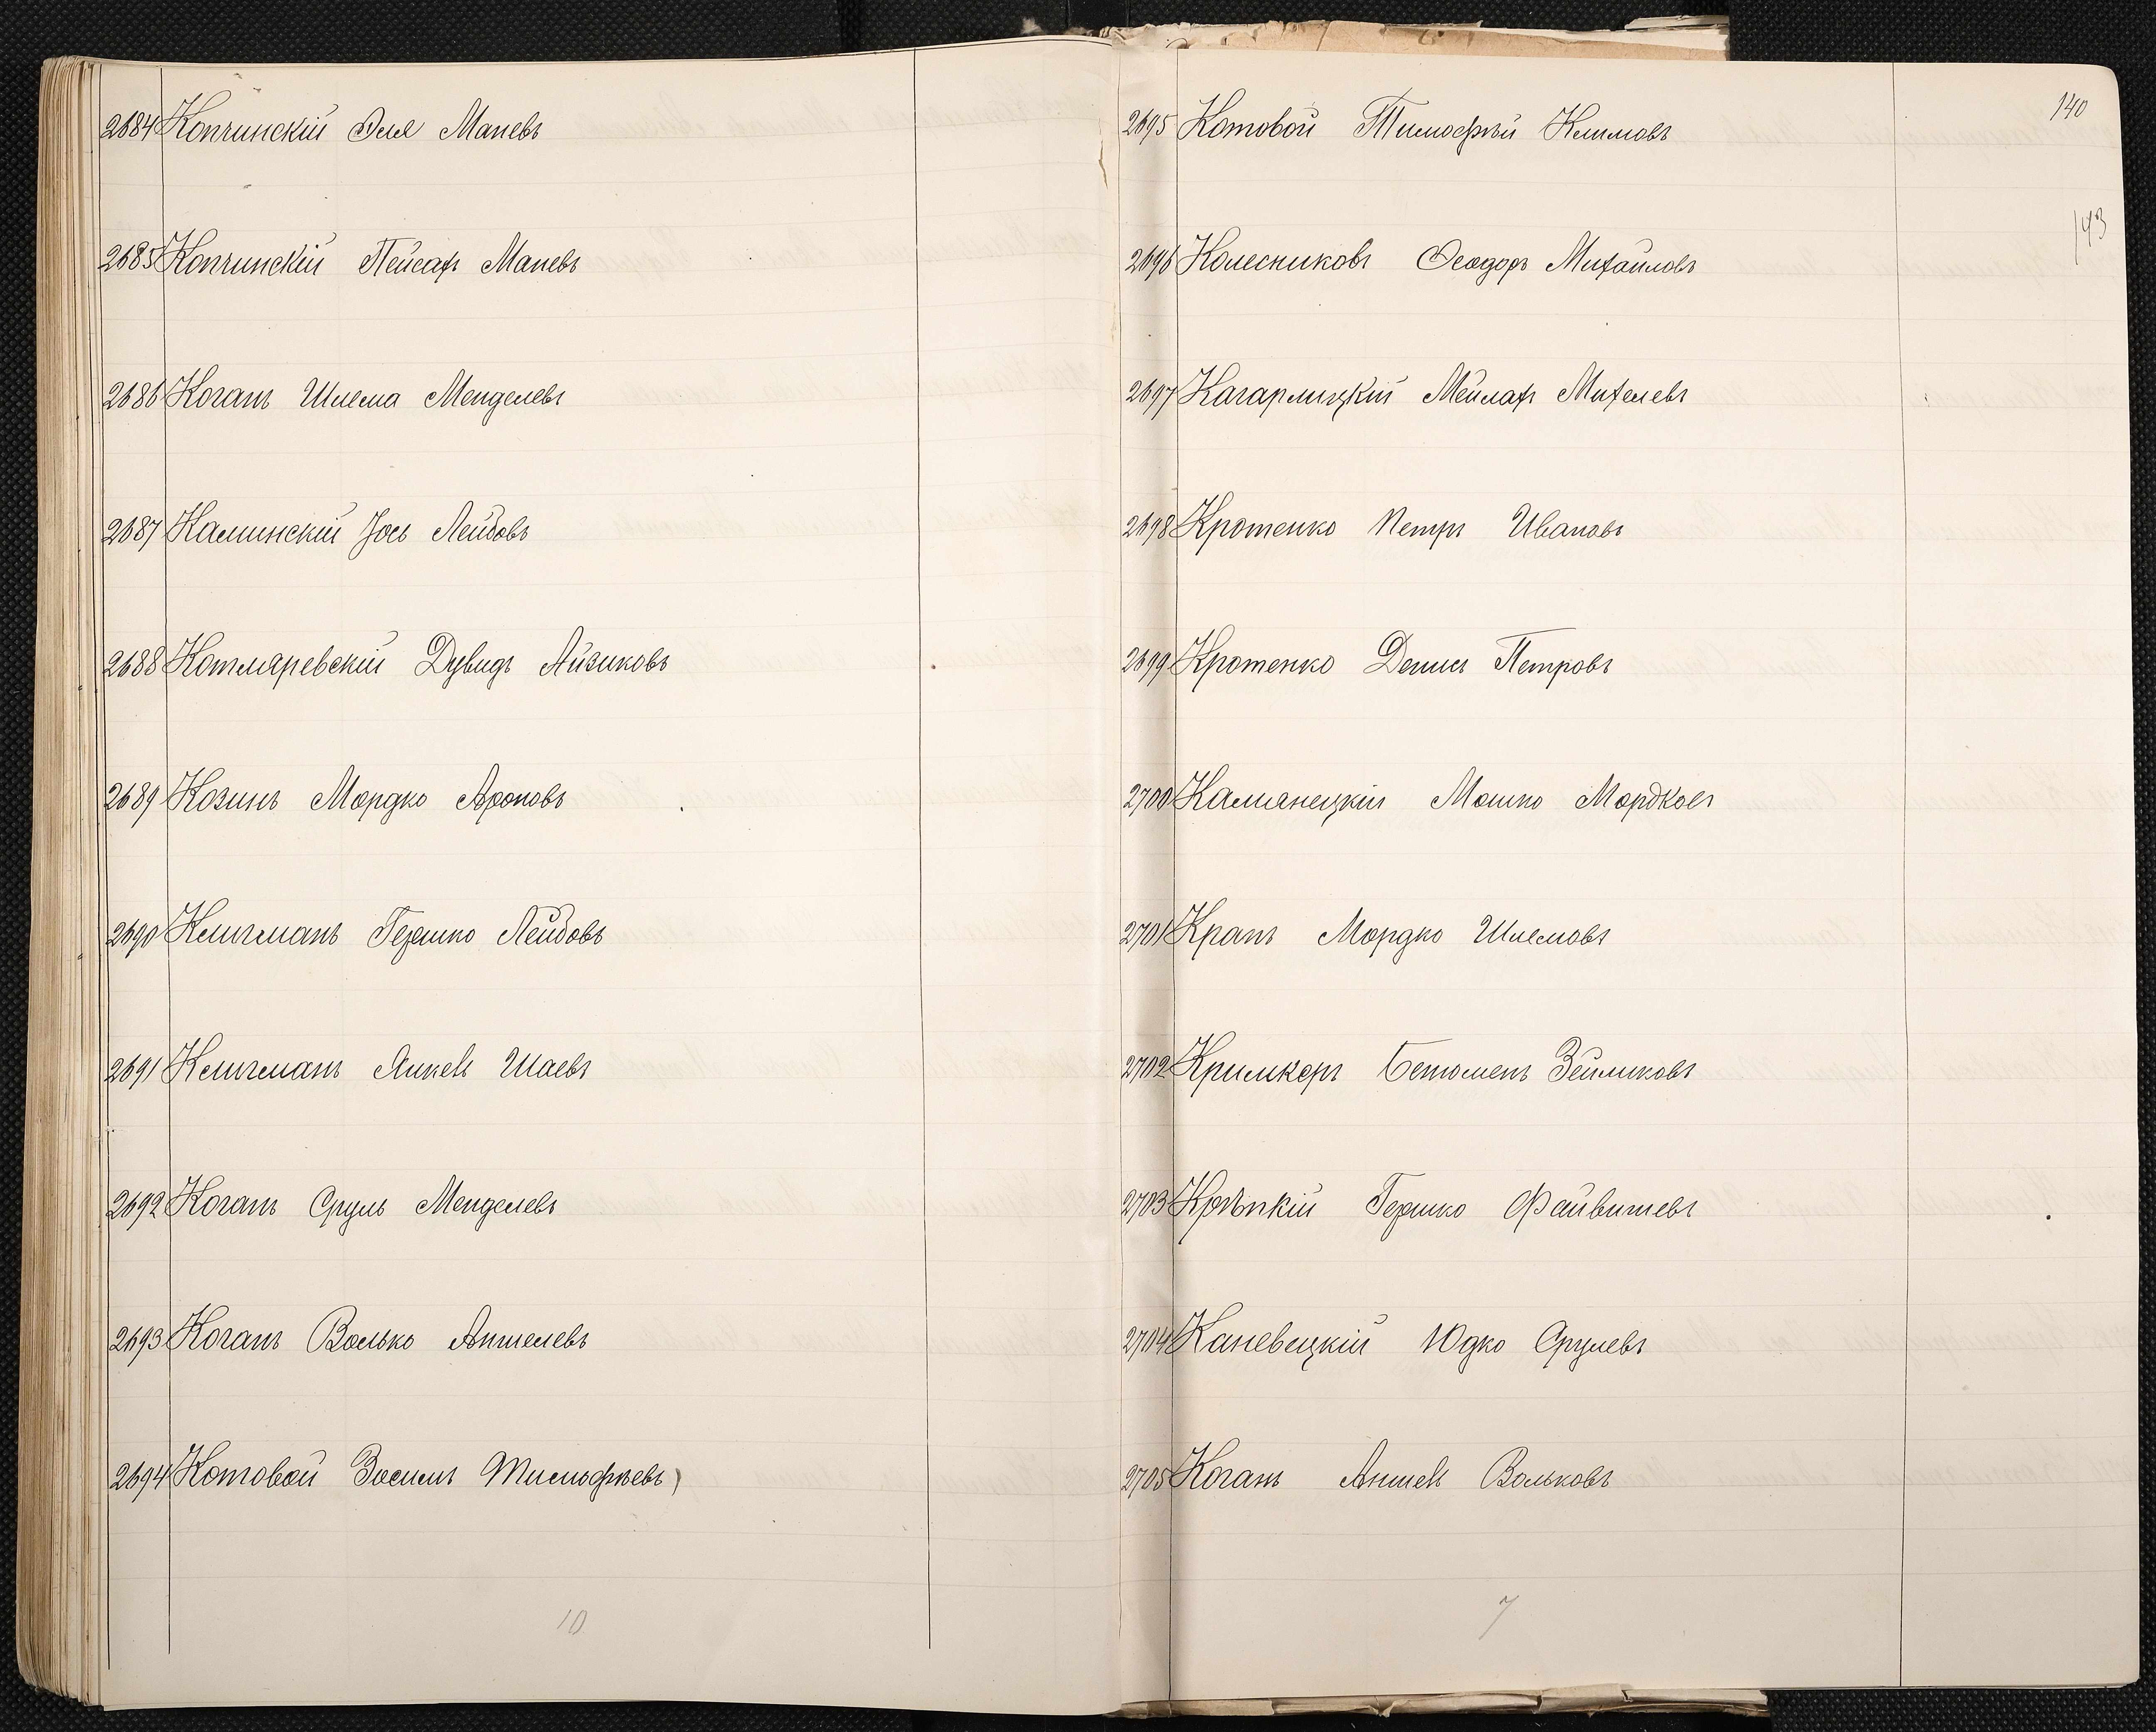 2684 Копчинскій Эля Маневъ
2685 Копчинскій Пейсахъ Маневъ
2686 Коганъ Шлема Менделевъ
2687 Калинскій Іось Лейбовъ
2688 Котляревскій Дувидъ Айзиковъ
2689 Козинъ Мордко Ароновъ
2690 Клигманъ Гершко Лейбовъ
2691 Клигманъ Янкель Шаевъ
2692 Коганъ Сруль Менделевъ
2693 Коганъ Волько Аншелевъ
2694 Котовой Зосимъ Тимофѣевъ
10
140
143
2695 Котовой Тимофѣй Климовъ
2696 Колесниковъ Ѳеодоръ Михайловъ
2697 Кагарлицкій Мейлахъ Михелевъ
2698 Кротенко Петръ Ивановъ
2699 Кротенко Денисъ Петровъ
2700 Камянецкій Мошко Мордковъ
2701 Крапъ Мордко Шлемовъ
2702 Кримкеръ Зейликовъ
2703 Крѣпкій Гершко Файвишевъ
2704 Каневецкій Юдко Срулевъ
2705 Коганъ Аншель Вольковъ
7